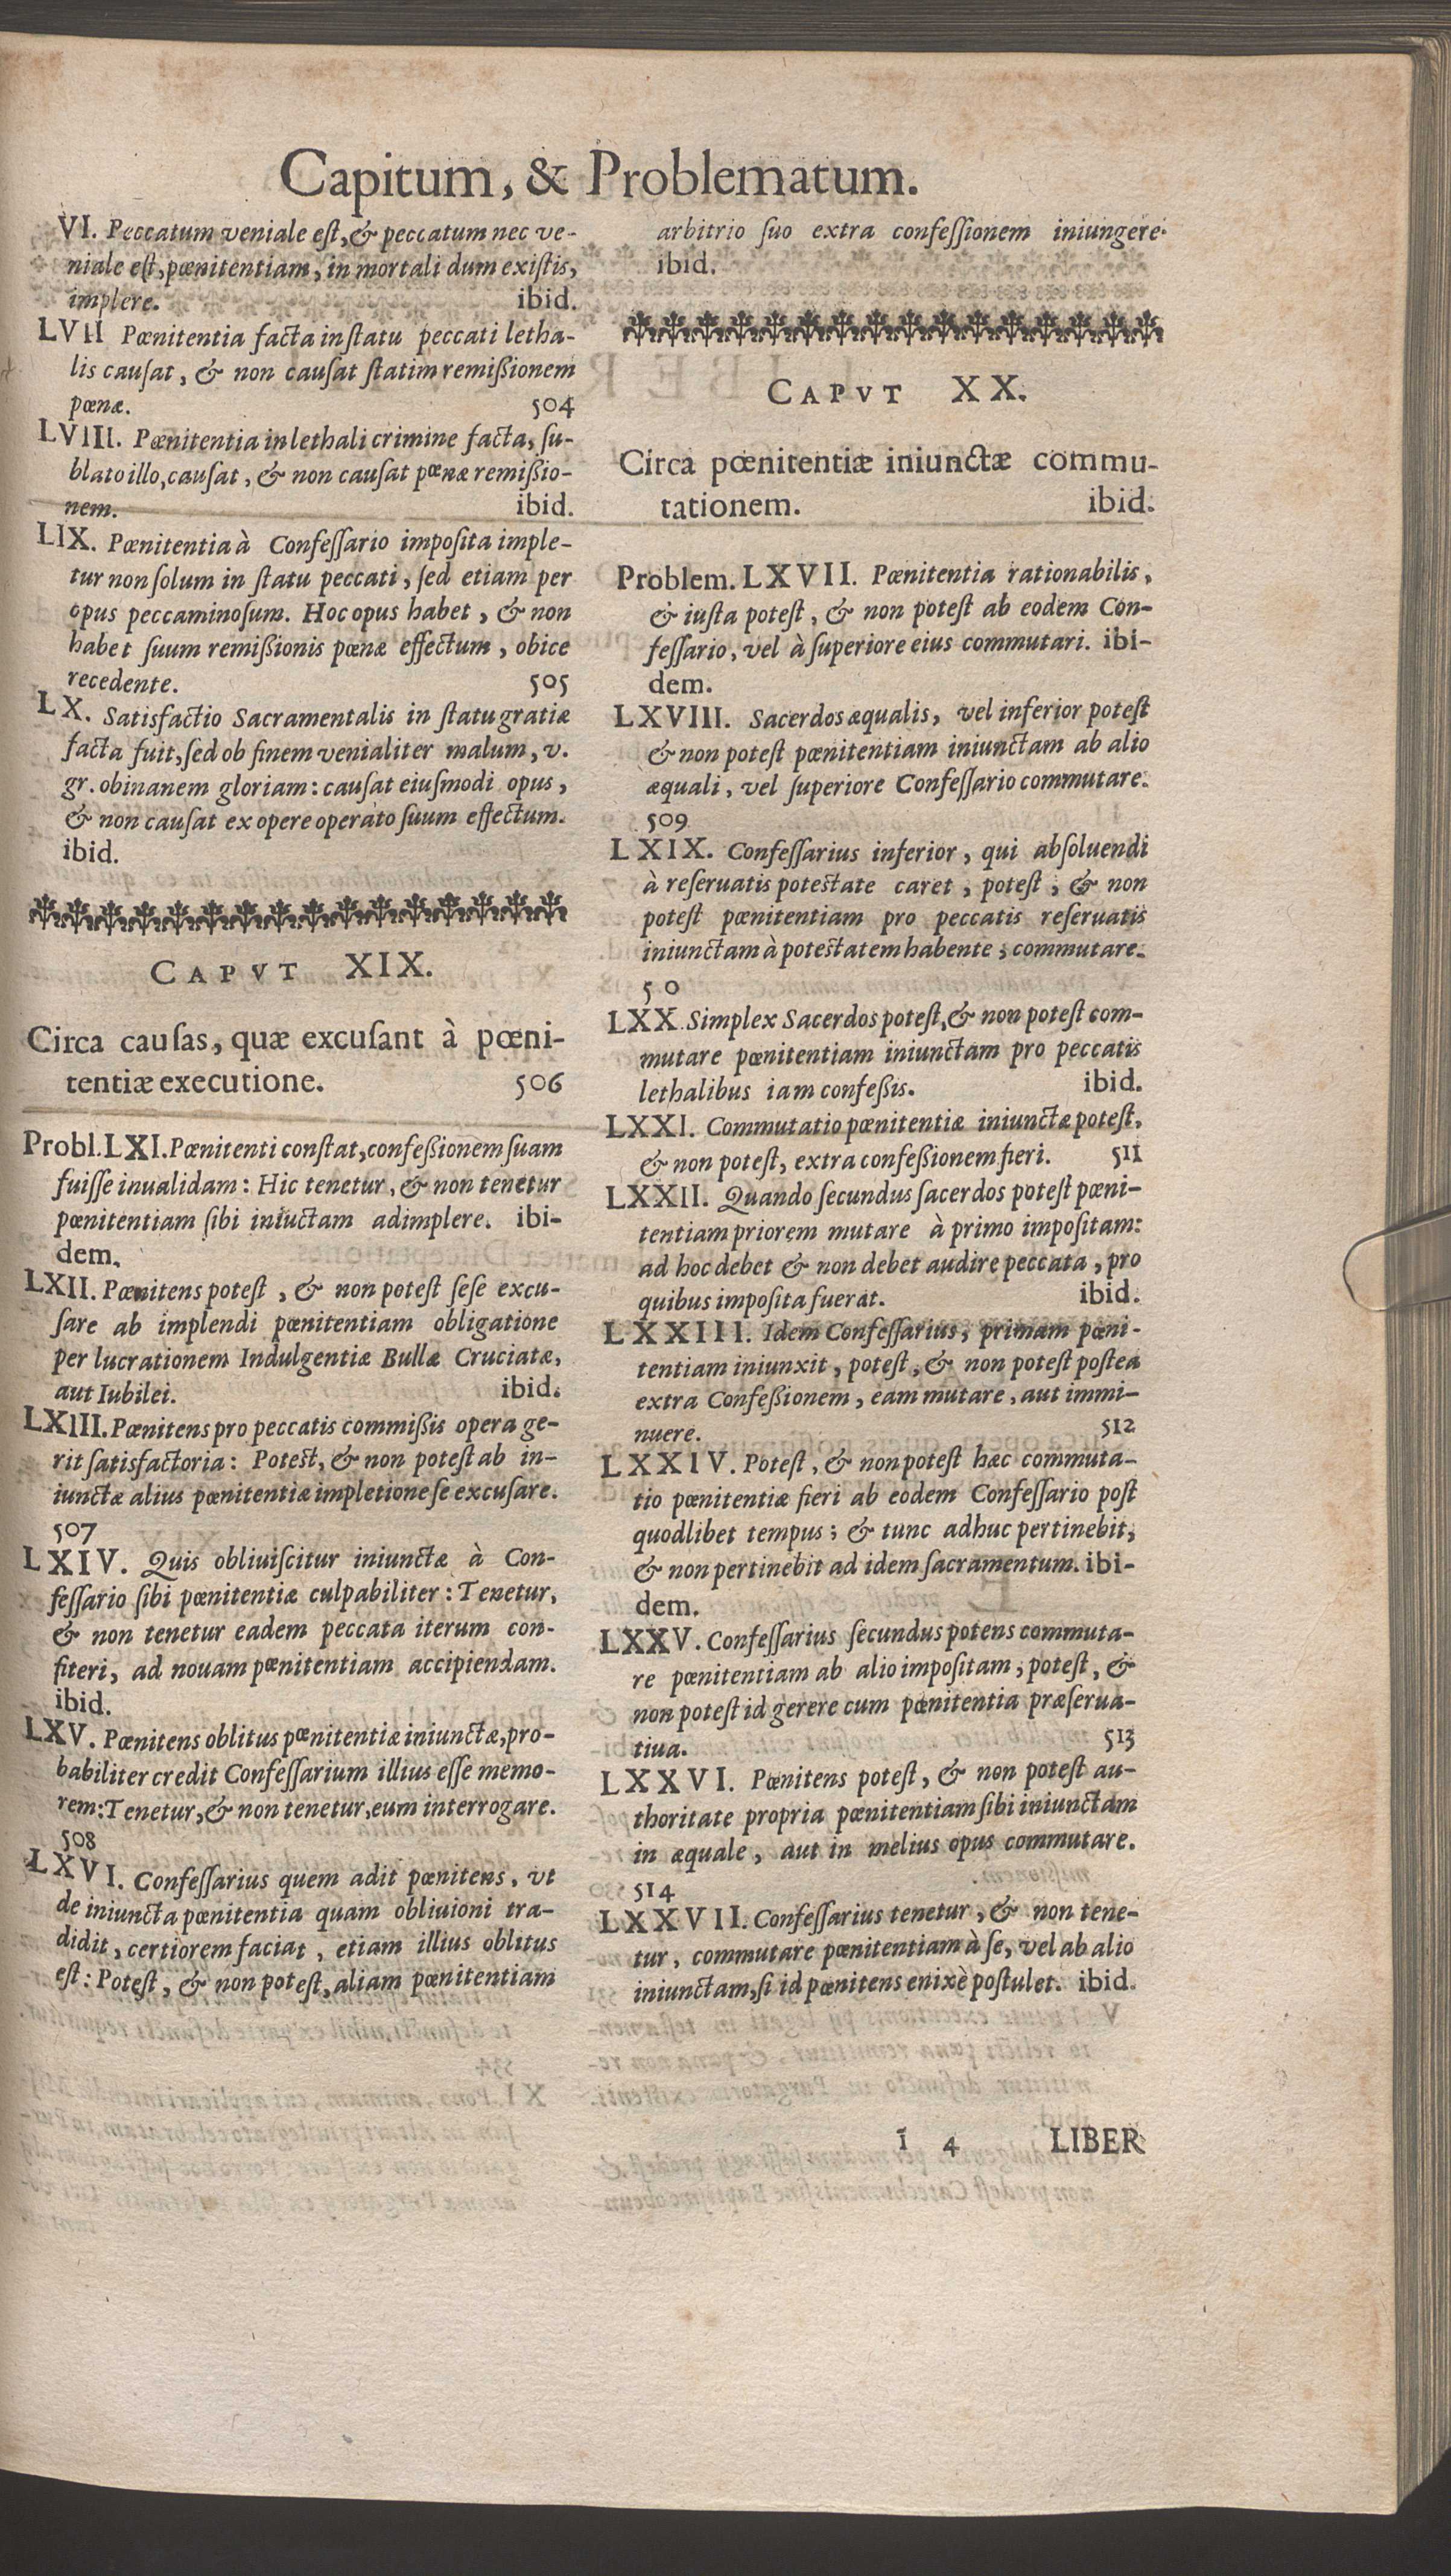 Capitum, & Problematum.
VI. Peccatum veniale eſt, & peccatum nec ve-
niale eſt, pœnitentiam, in mortali dum exiſtis,
implere. ibid.
LVII Pœnitentia facta in ſtatu peccati letha-
lis cauſat, & non cauſat ſtatim remißionem
pœnæ. 504
LVIII. Pœnitentia in lethali crimine facta, ſu-
blato illo, cauſat, & non cauſat pœnæ remißio-
nem. ibid.
LIX. Pœnitentia à Confeſſario impoſita imple-
tur non ſolum in ſtatu peccati, ſed etiam per
opus peccaminoſum. Hoc opus habet, & non
habet ſuum remißionis pœnæ effectum, obice
recedente. 505
LX. Satisfactio Sacramentalis in ſtatu gratiæ
facta fuit, ſed ob finem venialiter malum, v.
gr. ob inanem gloriam: cauſat eiuſmodi opus,
& non cauſat ex opere operàto ſuum effectum.
ibid.
CAPVT XIX.
Circa cauſas, quæ excuſant à pœni-
tentiæ executione. 506
Probl. LXI. Pœnitenti conſtat, confeßionem ſuam
fuiſſe inualidam: Hic tenetur, & non tenetur
pœnitentiam ſibi iniuctam adimplere. ibi-
dem.
LXII. Pœnitens poteſt, & non poteſt ſeſe excu-
ſare ab implendi pœnitentiam obligatione
per lucrationem Indulgentiæ Bullæ Cruciatæ,
aut Iubilei. ibid.
LXIII. Pœnitens pro peccatis commißis opera ge-
rit ſatisfactoria: Poteſt, & non poteſt ab in-
iunctæ alius pœnitentiæ impletione ſe excuſare.
507
LXIV. Quis obliuiſcitur iniunctæ à Con-
feſſario ſibi pœnitentiæ culpabiliter: Tenetur,
& non tenetur eadem peccata iterum con-
fiteri, ad nouam pœnitentiam accipiendam.
ibid.
LXV. Pœnitens oblitus pœnitentiæ iniunctæ, pro-
babiliter credit Confeſſarium illius eſſe memo-
rem: Tenetur, & non tenetur, eum interrogare.
508
LXVI. Confeſſarius quem adit pœnitens, vt
de iniuncta pœnitentia quam obliuioni tra-
didit, certiorem faciat, etiam illius oblitus
eſt: Poteſt, & non poteſt, aliam pœnitentiam
arbitrio ſuo extra confeſſionem iniungere.
ibid.
CAPVT XX.
Circa pœnitentiæ iniunctæ commu-
tationem. ibid.
Problem. LXVII. Pœnitentia rationabilis,
& iuſta poteſt, & non poteſt ab eodem Con-
feſſario, vel à ſuperiore eius commutari. ibi-
dem.
LXVIII. Sacerdos æqualis, vel inferior poteſt
& non poteſt pœnitentiam iniunctam ab alio
æquali, vel ſuperiore Confeſſario commutare.
509
LXIX. Confeſſarius inferior, qui abſoluendi
à reſeruatis poteſtate caret, poteſt, & non
poteſt pœnitentiam pro peccatis reſeruatis
iniunctam à poteſtatem habente, commutare.
5 0
LXX. Simplex Sacerdos poteſt, & non poteſt com-
mutare pœnitentiam iniunctam pro peccatis
lethalibus iam confeßis. ibid.
LXXI. Commutatio pœnitentiæ iniunctæ poteſt,
& non poteſt, extra confeßionem fieri. 511
LXXII. Quando ſecundus ſacerdos poteſt pœni-
tentiam priorem mutare à primo impoſitam:
ad hoc debet & non debet audire peccata, pro
quibus impoſita fuerat. ibid.
LXXIII. Idem Confeſſarius, primam pœni-
tentiam iniunxit, poteſt, & non poteſt poſtea
extra Confeßionem, eam mutare, aut immi-
nuere. 512
LXXIV. Poteſt, & non poteſt hæc commuta-
tio pœnitentiæ fieri ab eodem Confeſſario poſt
quodlibet tempus; & tunc adhuc pertinebit,
& non pertinebit ad idem ſacramentum. ibi-
dem.
LXXV. Confeſſarius ſecundus potens commuta-
re pœnitentiam ab alio impoſitam, poteſt, &
non poteſt id gerere cum pœnitentia præſerua-
tiua. 513
LXXVI. Pœnitens poteſt, & non poteſt au-
thoritate propria pœnitentiam ſibi iniunctam
in æquale, aut in melius opus commutare.
514
LXXVII. Confeſſarius tenetur, & non tene-
tur, commutare pœnitentiam à ſe, vel ab alio
iniunctam, ſi id pœnitens enixè poſtulet. ibid.
ī 4 LIBER